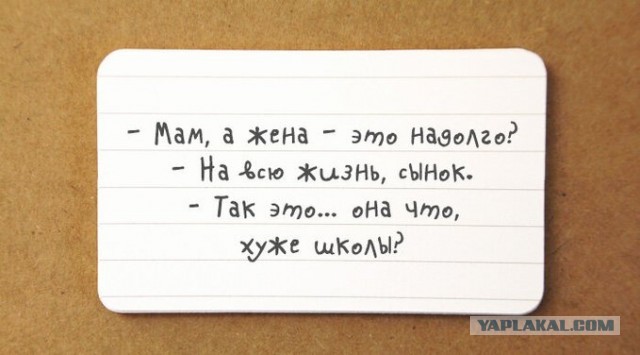 - Мам, а жена - это надолго?
- На всю жизнь, сынок.
- Так это... она что,
хуже школы?
YAPLAKAL.COM